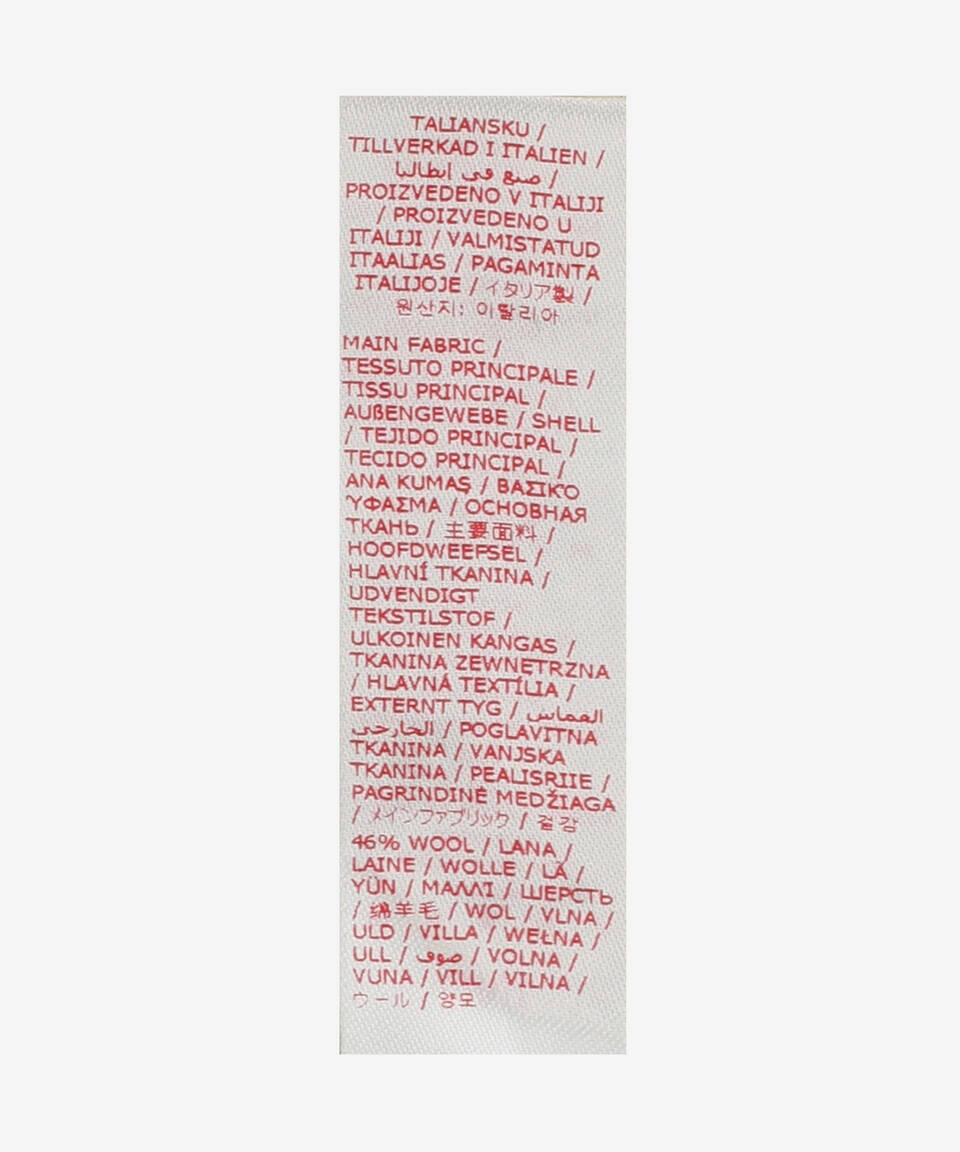 TALIANSKU /
TILLVERKAD I ITALIEN /
صنع في إيطاليا /
PROIZVEDENO V ITALIJI
/ PROIZVEDENO U
ITALIJI / VALMISTATUD
ITAALIAS / PAGAMINTA
ITALIJOJE / イタリア製 /
원산지: 이탈리아
MAIN FABRIC /
TESSUTO PRINCIPALE /
TISSU PRINCIPAL /
AUßENGEWEBE / SHELL
/ TEJIDO PRINCIPAL /
TECIDO PRINCIPAL /
ANA KUMAŞ / ΒΑΣΙΚΌ
ΎΦΑΣΜΑ / ОСНОВНАЯ
ТКАНЬ / 主要面料 /
HOOFDWEEFSEL /
HLAVNÍ TKANINA /
UDVENDIGT
TEKSTILSTOF /
ULKOINEN KANGAS /
TKANINA ZEWNĘTRZNA
/ HLAVNÁ TEXTÍLIA /
EXTERNT TYG / القماش
الخارجي / POGLAVITNA
TKANINA / VANJSKA
TKANINA / PEALISRIIE /
PAGRINDINĖ MEDŽIAGA
/ メインファブリック / 겉감
46% WOOL / LANA /
LAINE / WOLLE / LÃ /
YÜN / ΜΑΛΛΊ / ШЕРСТЬ
/ 绵羊毛 / WOL / VLNA /
ULD / VILLA / WEŁNA /
ULL / صوف / VOLNA /
VUNA / VILL / VILNA /
ウール / 양모